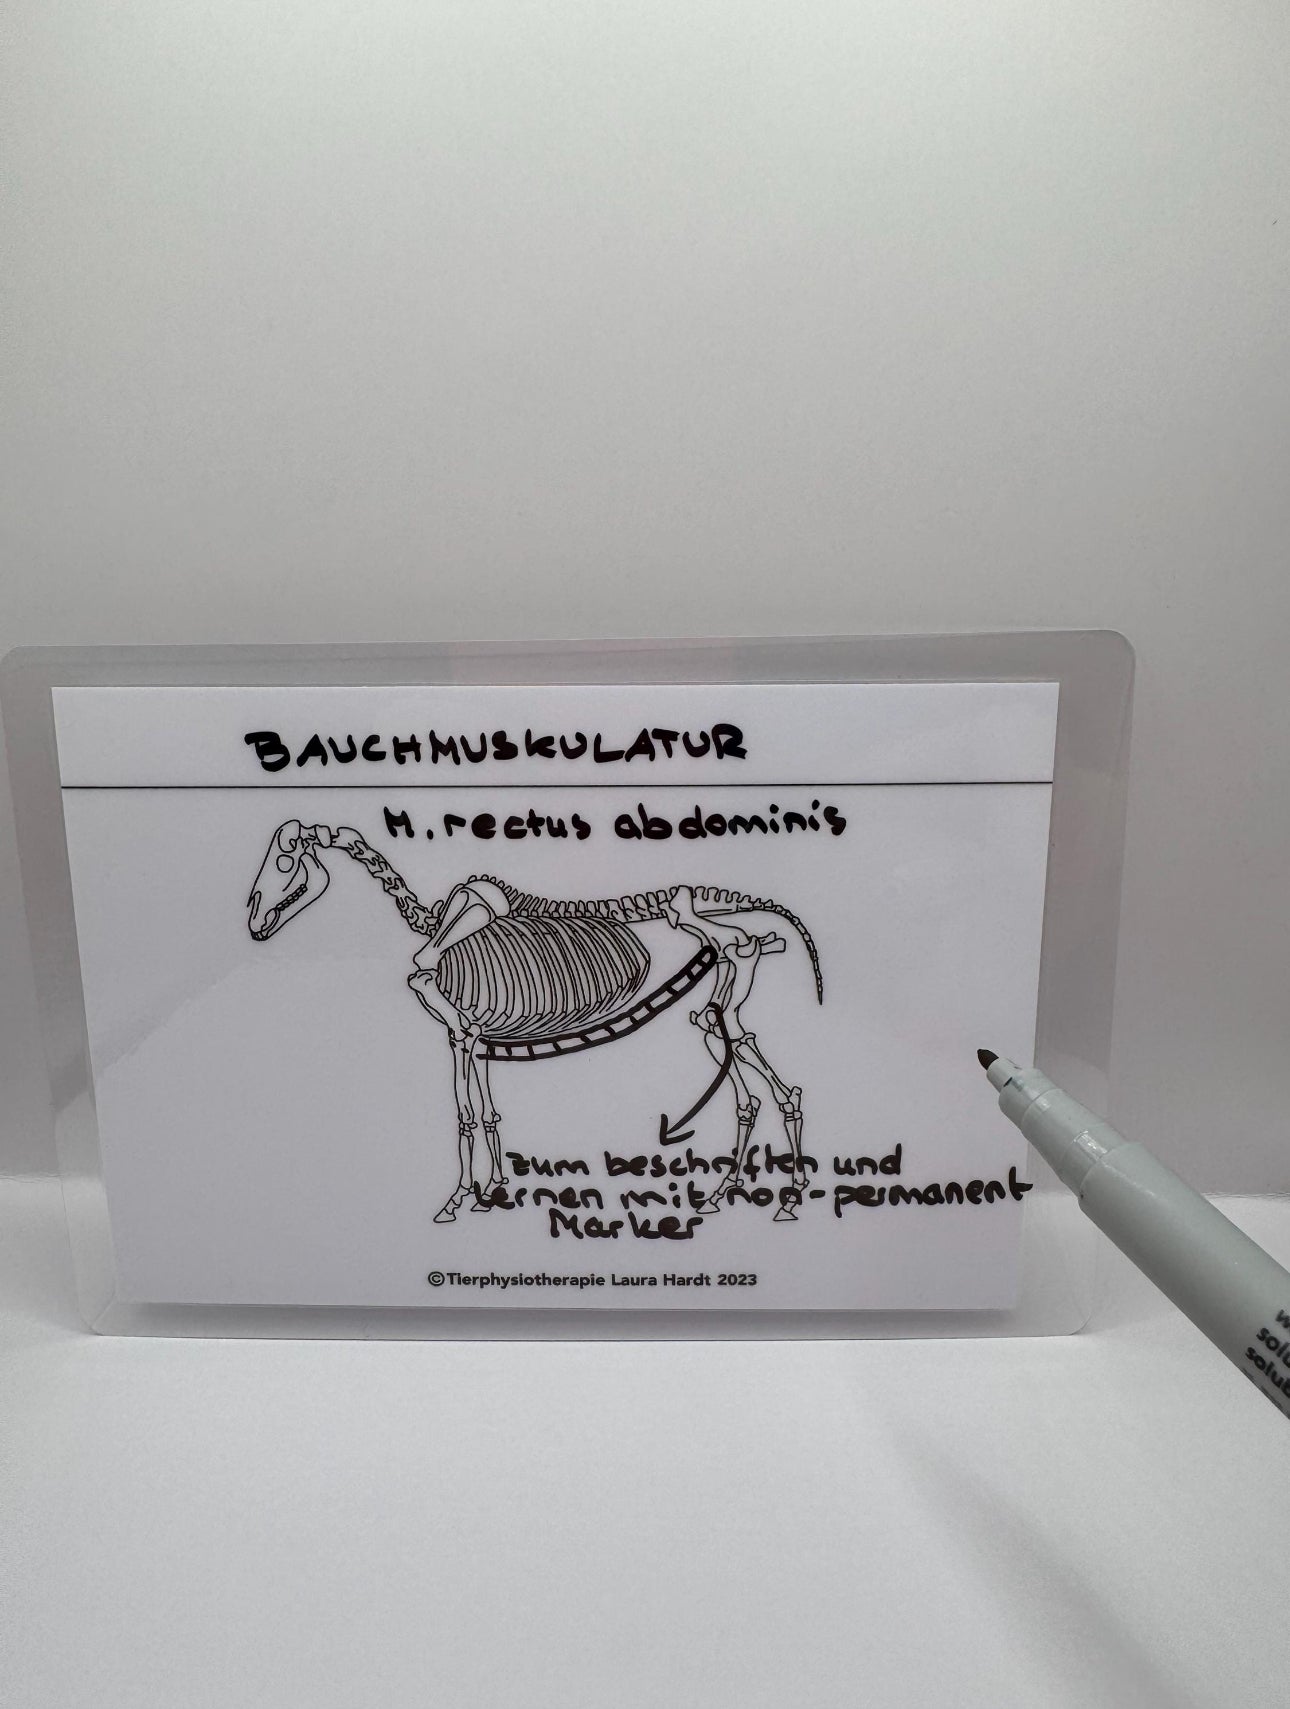 BAUCHMUSKULATUR
M. rectus abdominis
zum beschriften und
lernen mit non-permanent
Marker
©Tierphysiotherapie Laura Hardt 2023